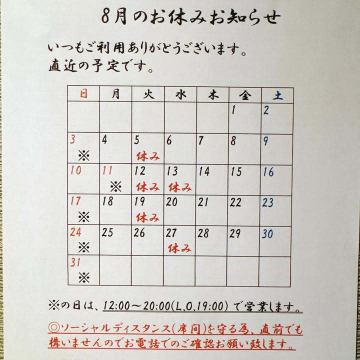 8月のお休みお知らせ
いつもご利用ありがとうございます。
直近の予定です。
日 月 火 水 木 金 土
1 2
3 4 5 6 7 8 9
※ 休み
10 11 12 13 14 15 16
※ 休み 休み
17 18 19 20 21 22 23
※ 休み
24 25 26 27 28 29 30
※ 休み
31
※
※の日は、12:00~20:00(L,O,19:00) で営業します。
◎ソーシャルディスタンス(席間)を守る為、直前でも
構いませんのでお電話でのご確認お願い致します。